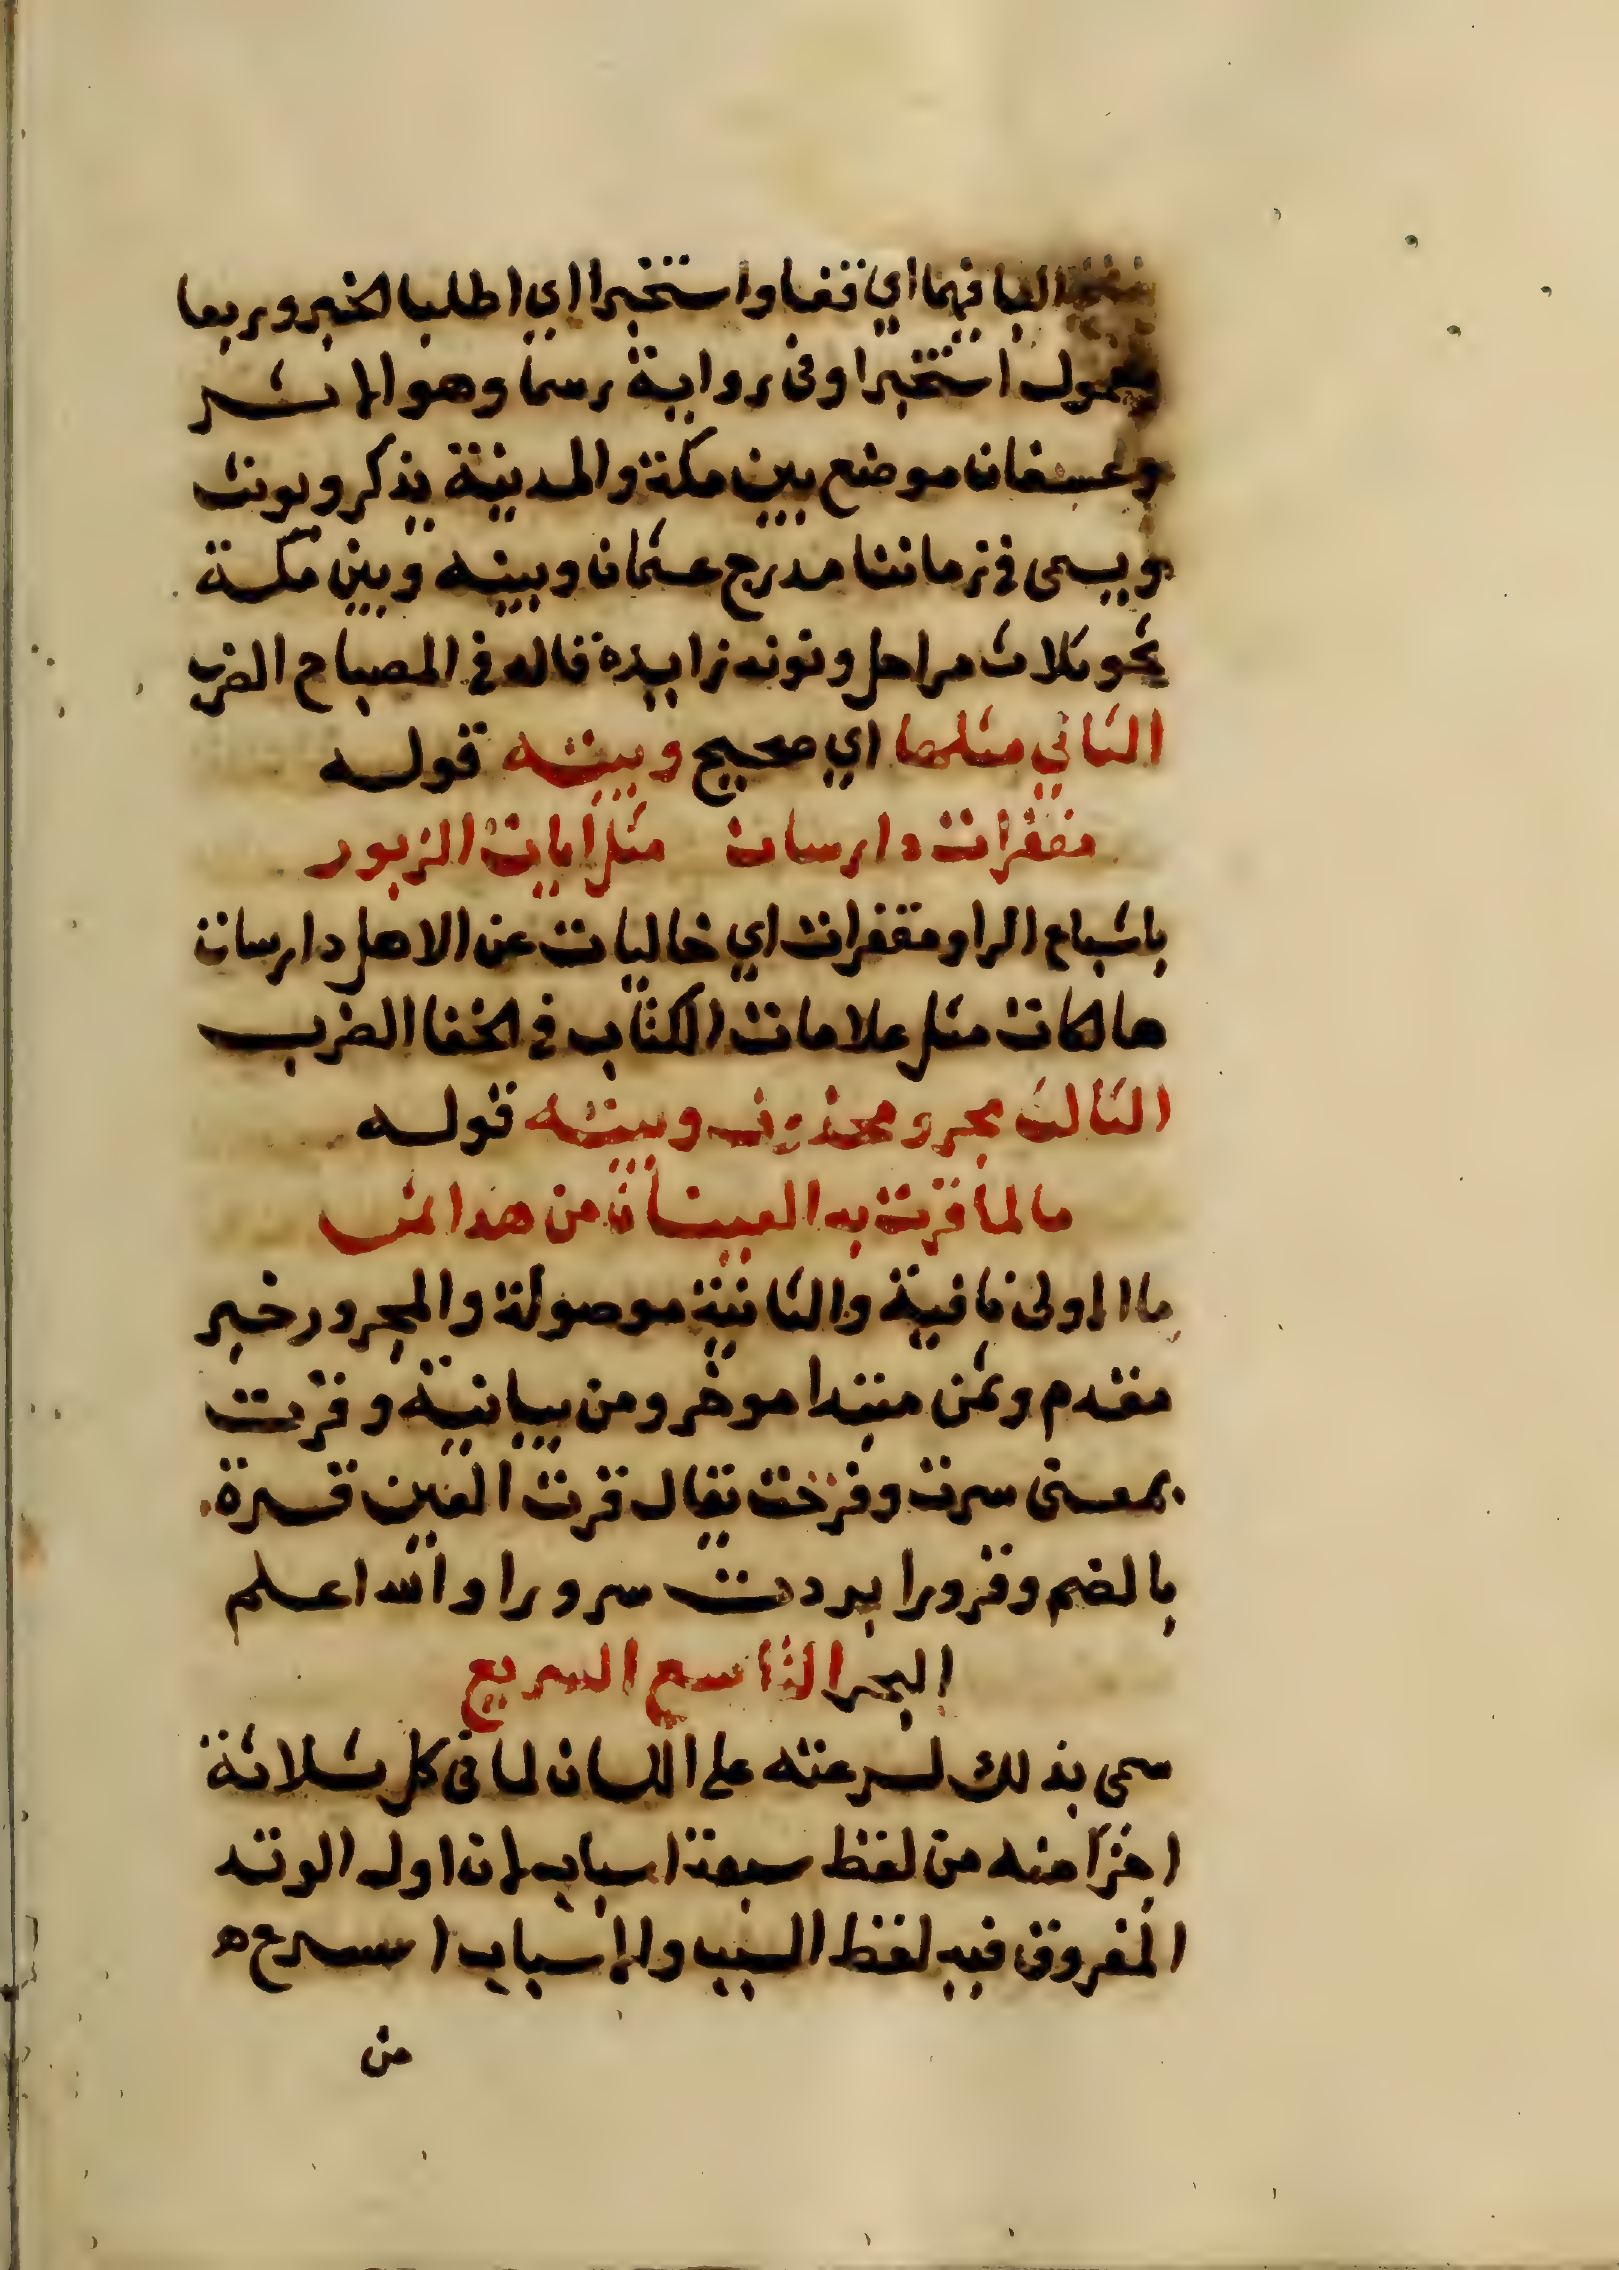 بفتح البا فيهما اي قفا واستخبرا اي اطلبا الخبر وربعا
معمول استخبرا وفى رواية رسما وهو الاثر
وعسفان موضع بين مكة والمدينة يذكر ويونث
ويسمى في زماننا مدرج عثمان وبينه وبين مكة
نحو ثلاث مراحل ونونه زايدة قاله في المصباح الضرب
الثاني مثلها اي صحيح وبيته قوله
مقفرات دارسات مثل آيات الزبور
باشباع الرا ومقفرات اي خاليات عن الاهل دارسات
هالكات مثل علامات الكتاب في الخفا الضرب
الثالث مجزو محذوف وبيته قوله
ما لما قرت به العينان من هذا ثمن
ما الاولى نافية والثانية موصولة والمجرور خبر
مقدم وثمن مبتدا موخر ومن بيانية وقرت
بمعنى سرت وفرحت يقال قرت العين قرة
بالضم وقرورا بردت سرورا والله اعلم
البحر التاسع السريع
سمى بذلك لسرعته على اللسان لما فى كل ثلاثة
اجزآ منه من لفظ سبعة اسباب لان اول الوتد
المفروق فيه لفظ السبب والاسباب اسرع
من